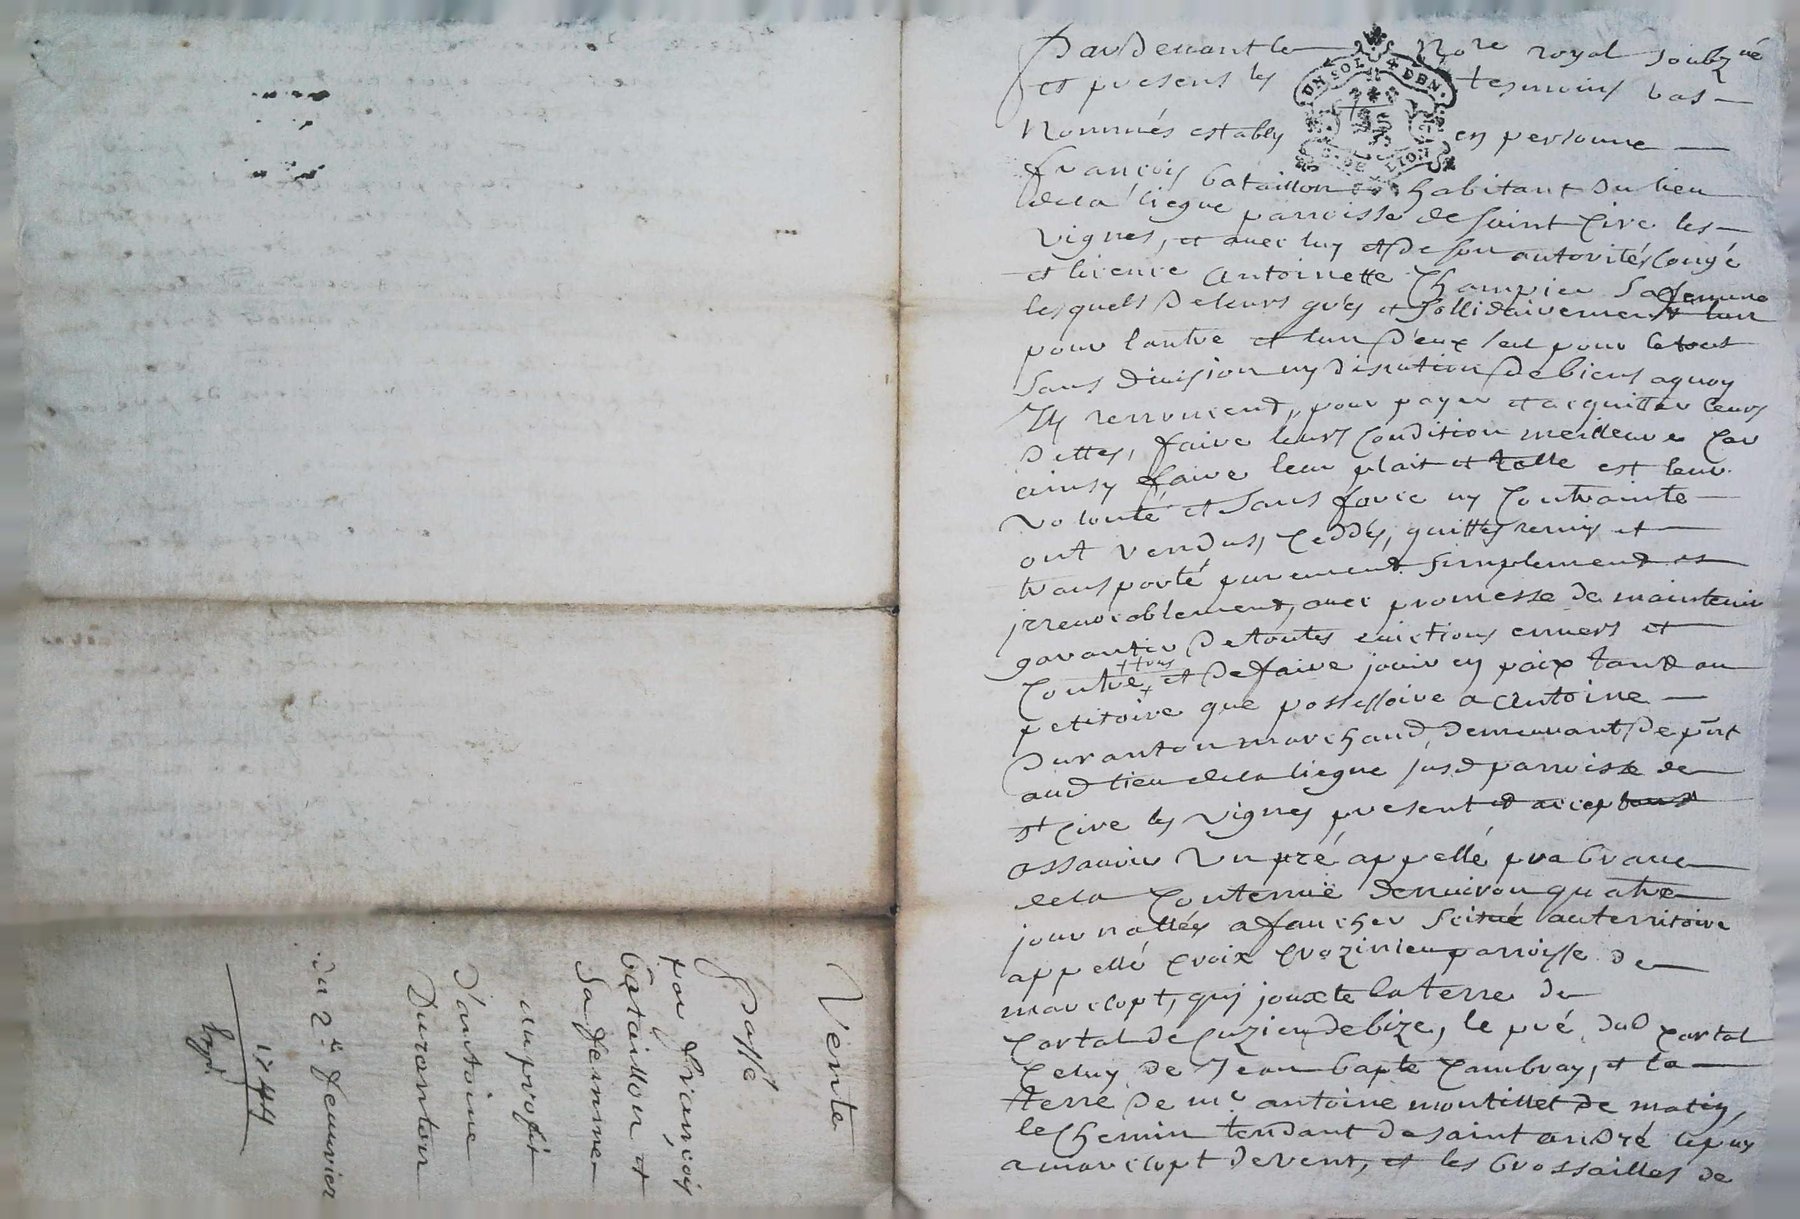 Vente
Passé
par françois
Bataillon et
Sa femme
au profit
d'antoine
Duranton
du 2e feuvrier
1744
Pardevant le Nore royal soubzné
et presens les tesmoins bas
Nommés estably en personne
françois bataillon habitant du lieu
de la liegue parroisse de saint Cire les
vignes, et avec luy et de son autorités Congé
et licence antoinette Champier Sa femme
lesquels de leurs grés et sollidairement lun
pour lautre et lun d'eux seul pour le tout
sans division ny discution de biens a quoy
Ils renoncent, pour payer et acquitter leurs
dettes, faire leurs Condition meilleure Car
ainsy faire leur plait et telle est leur
volonté et sans force ny Contrainte
ont vendus, Ceddés, quittés remis et
transporté purement simplement et
irrevocablement, avec promesse de maintenir
garantir de toutes evictions envers et
Contre tous et de faire jouir en paix tant au
petitoire que possessoire a antoine
Duranton marchand, demeurant de pnt
aud lieu de la liegue susd parroisse de
st Cire les vignes present et acceptant
assavoir Un pré appellé
de la Contenue denviron quatre
journallées a faucher scitué au territoire
appellé Croix Crozinieu parroisse de
marclopt, qui jouxte la terre de
Cartal de Cuzieu de bize, le pré dud Cartal
Celuy de Jean bapte Cambray, et la
terre de me antoine montillet de matin,
le Chemin tendant de saint andré le puy
a marclopt de vent, et les brossailles de
UN SOL 4 DEN.
G. DE LION